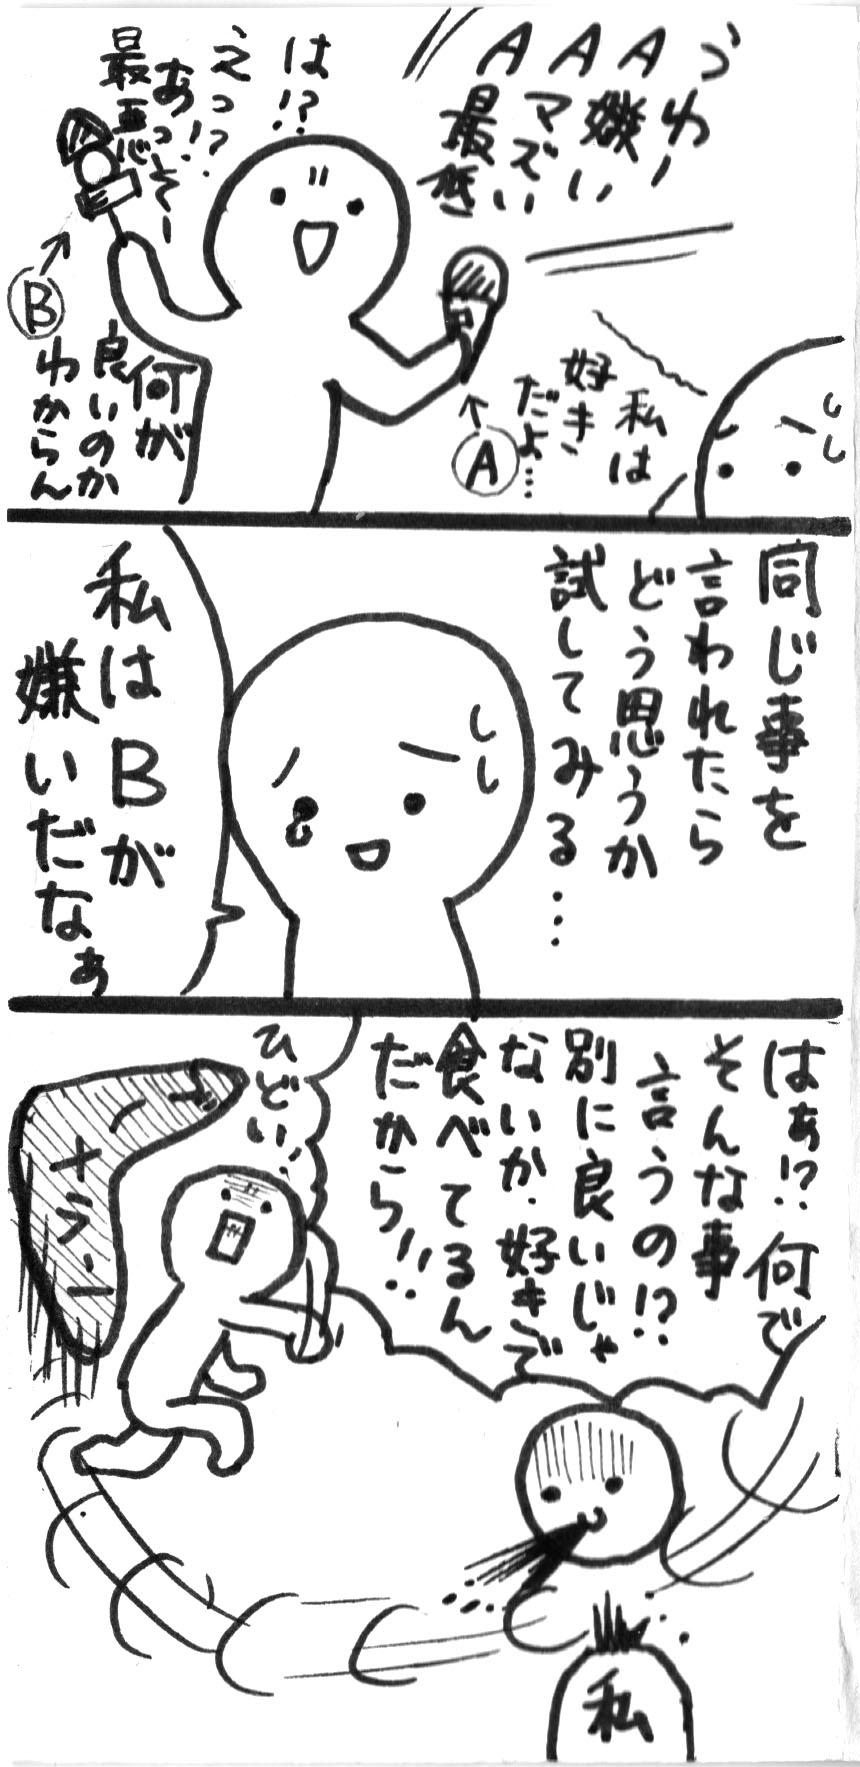 うわー
AAA
嫌い
マズい
最低
私は
好き
だよ…
は!?
えっ?!
あっそー
最悪
何が
良いのか
わからん
A
B
同じ事を
言われたら
どう思うか
試してみる…
私はBが
嫌いだなぁ
はぁ!?何で
そんな事
言うの!?
別に良いじゃ
ないか、好きで
食べてるん
だから!!
ひどい!
ブーメラン
私